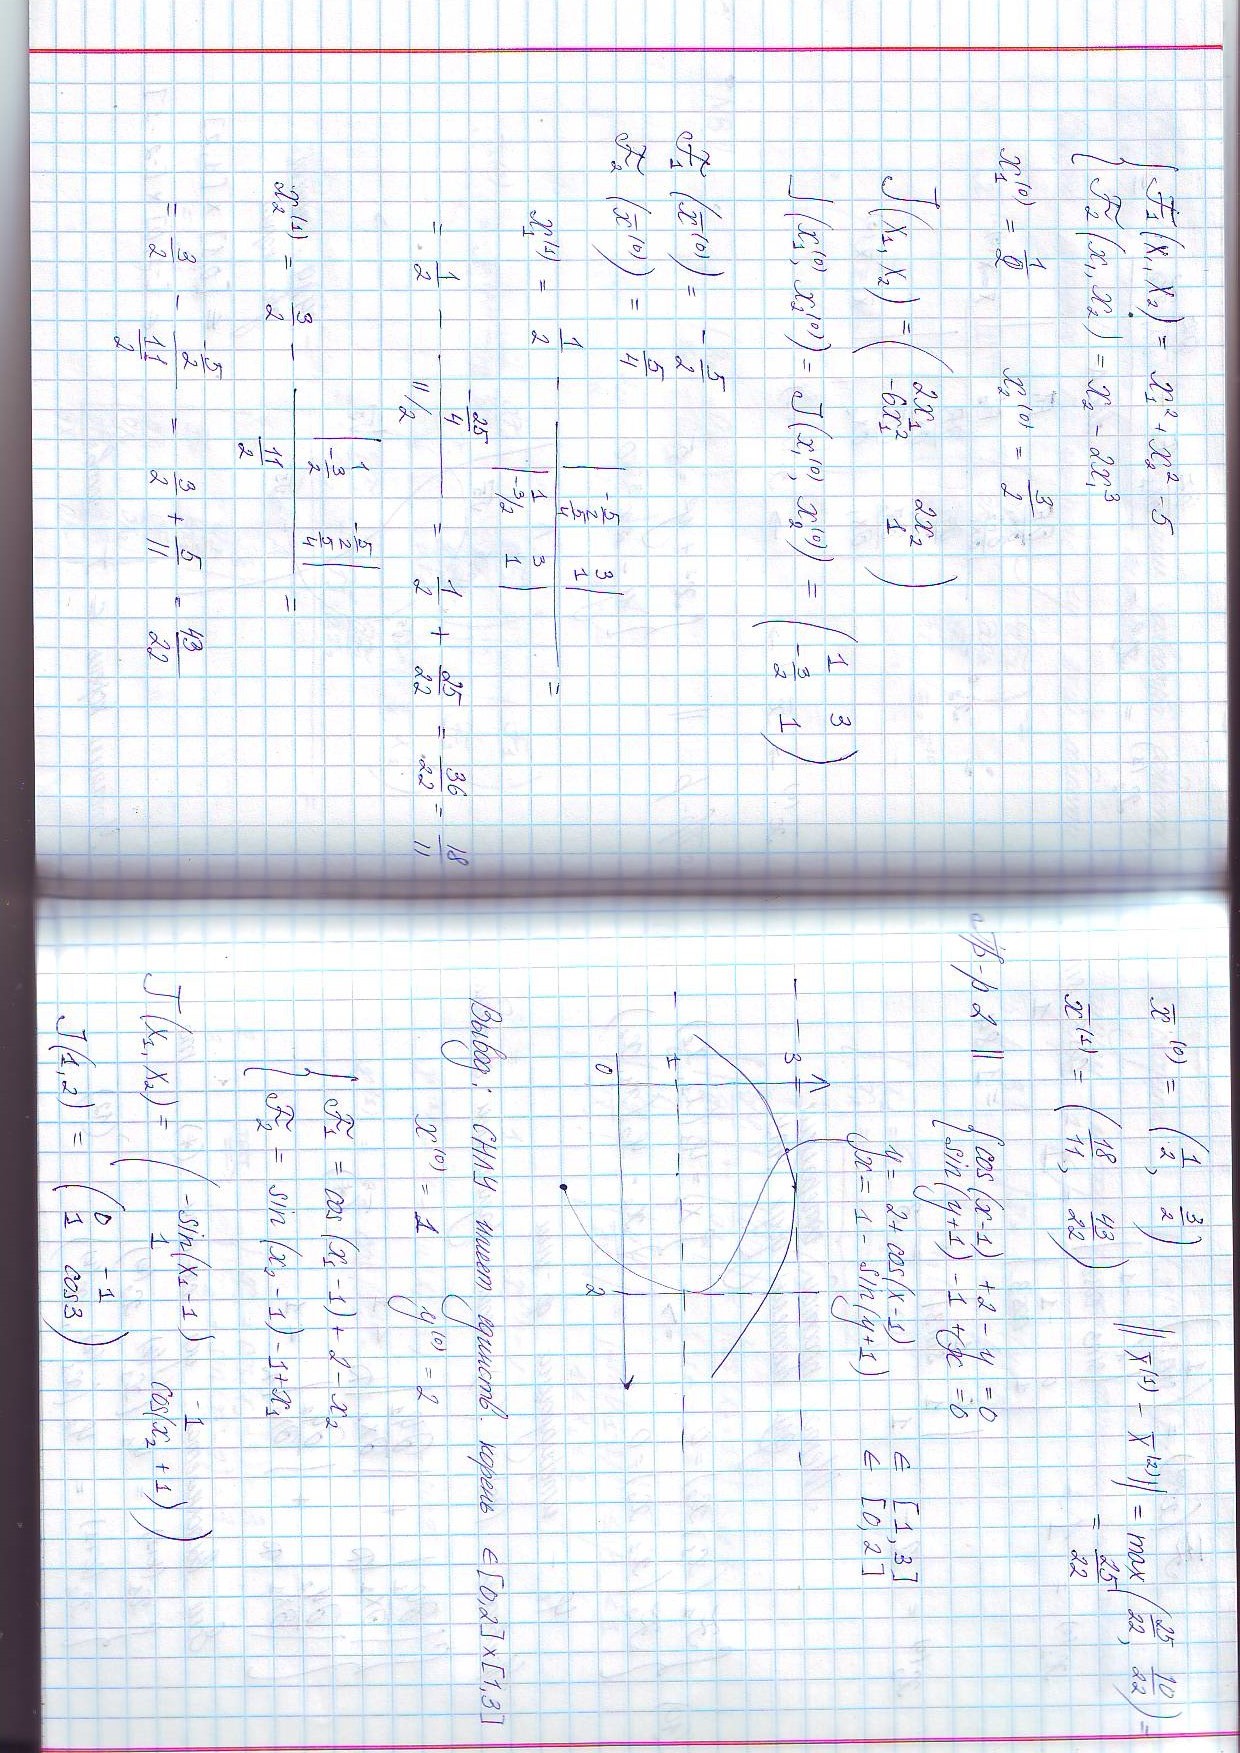 F₁(x₁, x₂) = x₁² + x₂² - 5
F₂(x₁, x₂) = x₂ - 2x₁³
x₁⁽⁰⁾ = 1/2    x₂⁽⁰⁾ = 3/2
J(x₁, x₂) = ( 2x₁  2x₂
-6x₁²  1 )
J(x₁⁽⁰⁾, x₂⁽⁰⁾) = J(x₁⁽⁰⁾, x₂⁽⁰⁾) = ( 1  3
-3/2  1 )
F₁(x̄⁽⁰⁾) = -5/2
F₂(x̄⁽⁰⁾) = 5/4
x₁⁽¹⁾ = 1/2 - | -5/2  3
5/4  1 | / | 1  3
-3/2  1 | =
= 1/2 - (-25/4)/(11/2) = 1/2 + 25/22 = 36/22 = 18/11
x₂⁽¹⁾ = 3/2 - | 1  -5/2
-3/2  5/4 | / 11/2 =
= 3/2 - (-5/2)/(11/2) = 3/2 + 5/11 = 43/22
x̄⁽⁰⁾ = (1/2, 3/2)    ‖x̄⁽¹⁾ - x̄⁽²⁾‖ = max(25/22, 10/22) =
x̄⁽¹⁾ = (18/11, 43/22)    = 25/22
В-р 2 ‖ { cos(x-1) + 2 - y = 0
sin(y+1) - 1 + x = 0
y = 2 + cos(x-1)  ∈ [1, 3]
x = 1 - sin(y+1)  ∈ [0, 2]
3
1
0
2
Вывод: СНАУ имеет единств. корень ∈ [0,2] x [1,3]
x⁽⁰⁾ = 1    y⁽⁰⁾ = 2
F₁ = cos(x₁ - 1) + 2 - x₂
F₂ = sin(x₂ - 1) - 1 + x₁
J(x₁, x₂) = ( -sin(x₁ - 1)  -1
1  cos(x₂ + 1) )
J(1, 2) = ( 0  -1
1  cos3 )